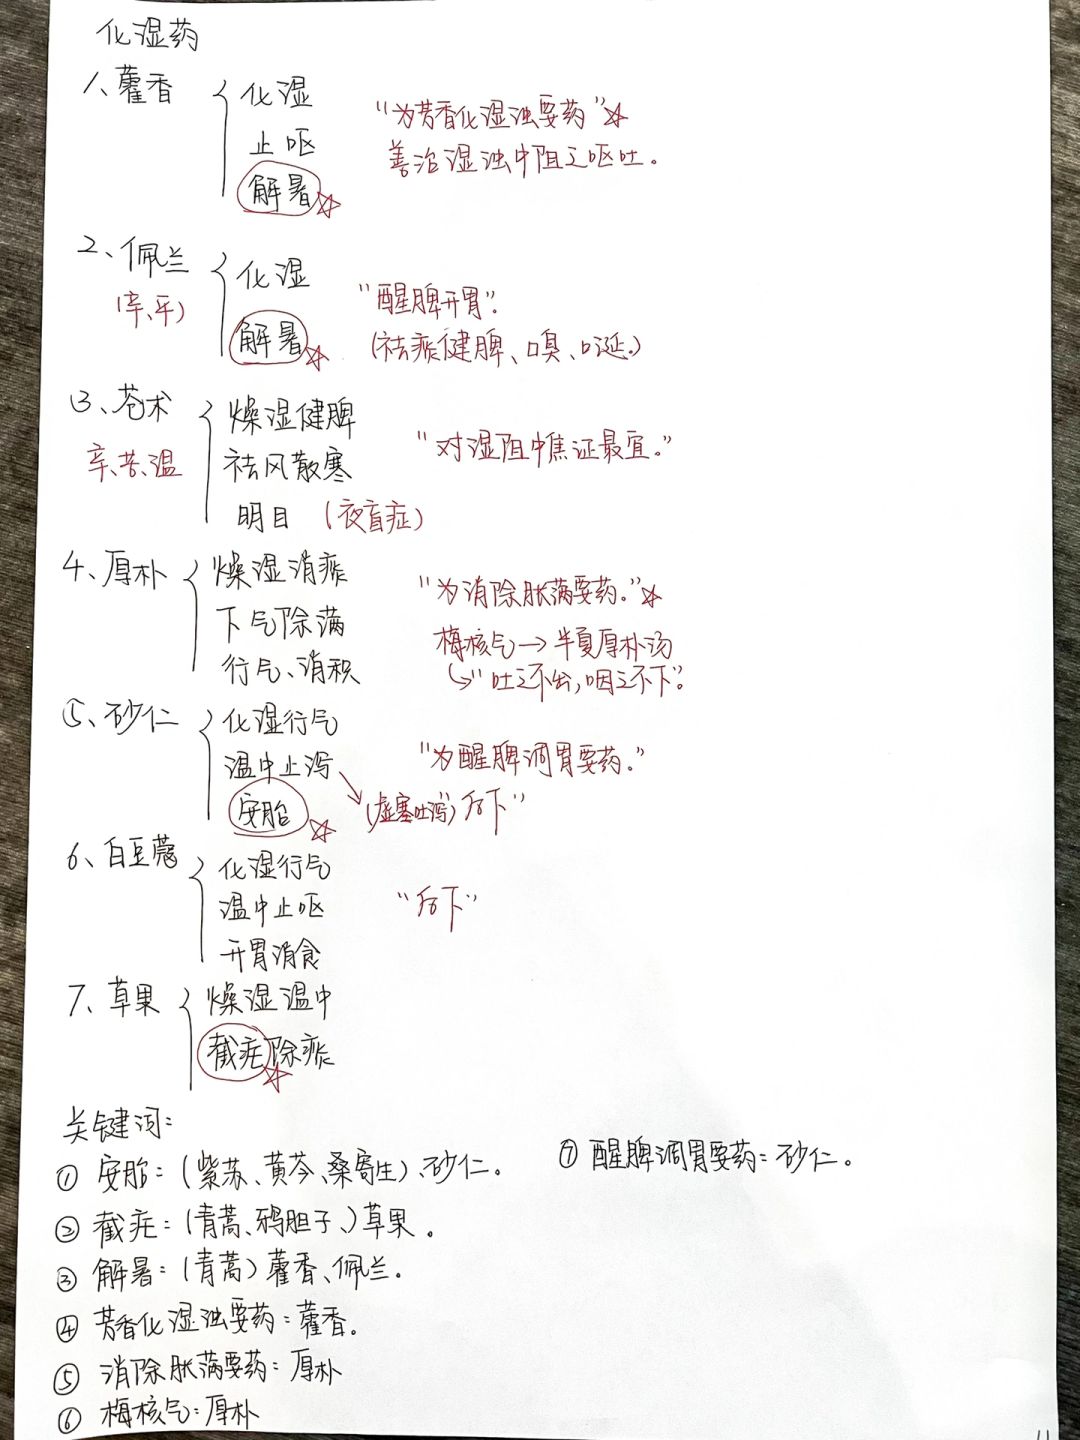 化湿药
1、藿香 化湿 "为芳香化湿浊要药"☆
止呕 善治湿浊中阻之呕吐。
解暑☆
2、佩兰 化湿
(辛、平) "醒脾开胃".
解暑☆ (祛痰健脾、口臭、口涎。)
3、苍术 燥湿健脾
辛、苦、温 祛风散寒 "对湿阻中焦证最宜。"
明目 (夜盲症)
4、厚朴 燥湿消痰 "为消除胀满要药。"☆
下气除满 梅核气→半夏厚朴汤
行气、消积 ↳"吐之不出,咽之不下".
⑤、砂仁 化湿行气
温中止泻 "为醒脾调胃要药。"
安胎☆ (虚寒吐泻) 后下"
6、白豆蔻 化湿行气
温中止呕 "后下"
开胃消食
7、草果 燥湿温中
截疟除痰☆
关键词:
① 安胎:(紫苏、黄芩、桑寄生)、砂仁。 ⑦ 醒脾调胃要药:砂仁。
② 截疟:(青蒿、鸦胆子、)草果。
③ 解暑:(青蒿)藿香、佩兰.
④ 芳香化湿浊要药:藿香。
⑤ 消除胀满要药:厚朴
⑥ 梅核气:厚朴